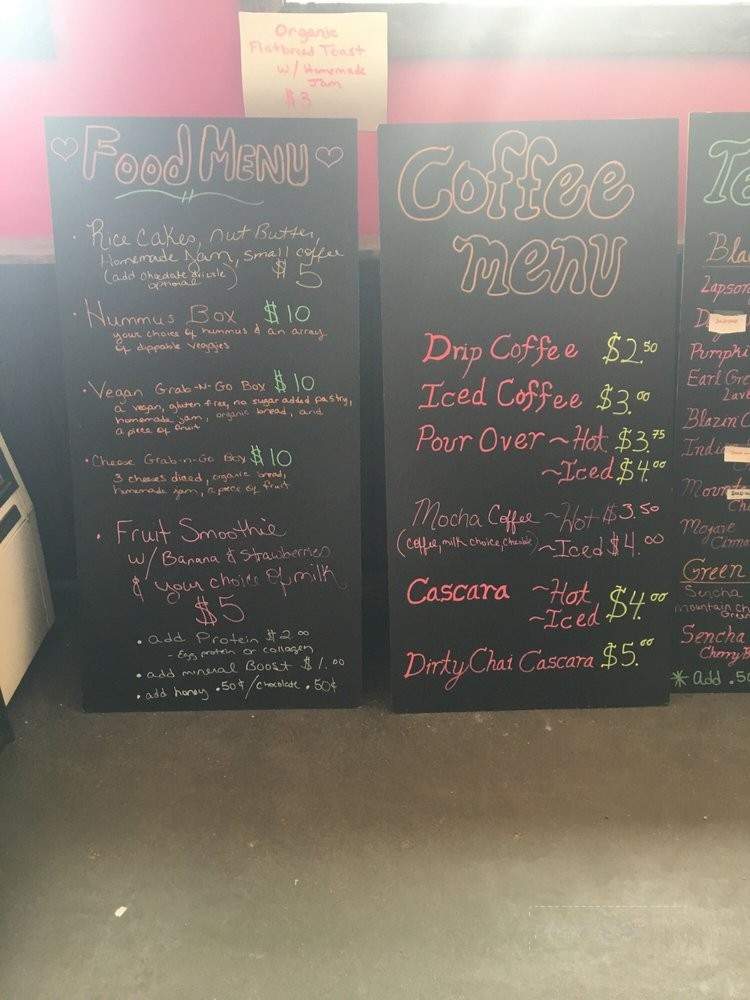 Organic
Flatbread Toast
w/ Homemade
Jam
$3
Food MENU
• Rice Cakes, nut Butter,
Homemade Jam, small coffee
(add chocolate drizzle
optional) $5
• Hummus Box $10
your choice of hummus & an array
of dippable veggies
• Vegan Grab-N-Go Box $10
a vegan, gluten free, no sugar added pastry,
homemade jam, organic bread, and
a piece of fruit
• Cheese Grab-n-Go Box $10
3 cheeses diced, organic bread,
homemade jam, a piece of fruit
• Fruit Smoothie
w/ Banana & Strawberries
& your choice of milk
$5
• add Protein $2.00
- Egg protein or collagen
• add mineral Boost $1.00
• add honey .50¢/chocolate .50¢
Coffee
menu
Drip Coffee $2.50
Iced Coffee $3.00
Pour Over ~ Hot $3.75
~Iced $4.00
Mocha Coffee ~Hot $3.50
(coffee, milk choice, chocolate) ~Iced $4.00
Cascara ~Hot
~Iced $4.00
Dirty Chai Cascara $5.00
Te
Bla
Lapson
Pumpki
Earl Gre
Lave
Blazin C
Indi
Mount
Cha
Mojave
Cinna
Green
Sencha
mountain
Green
Sencha
Cherry B
* add .50